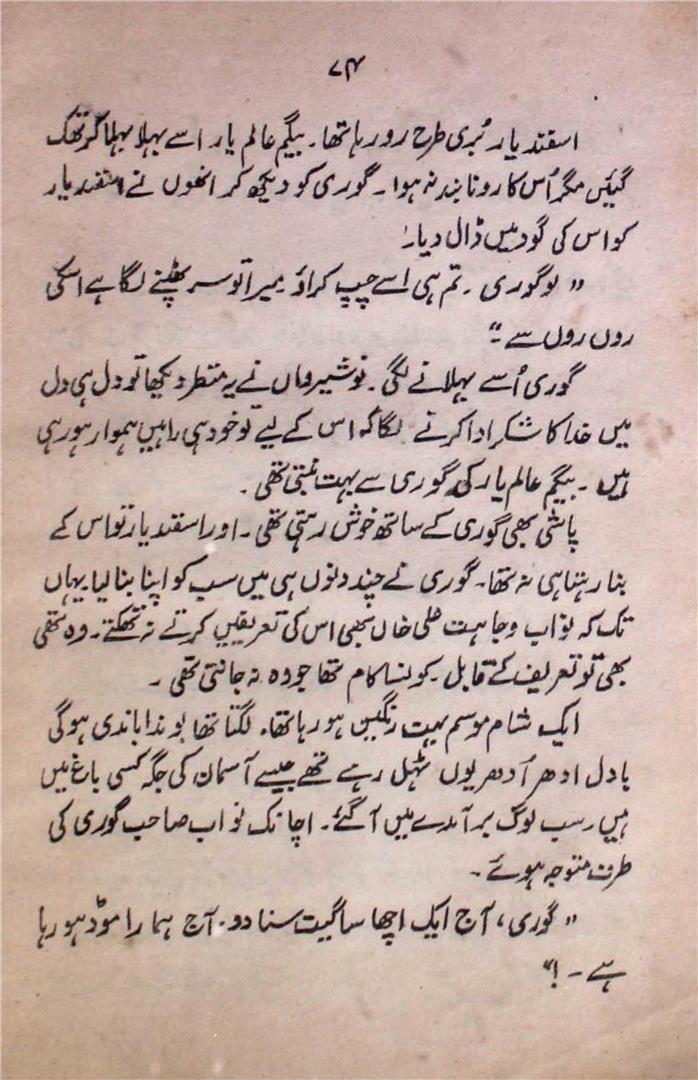 ۷۴
اسفندیار بُری طرح رو رہا تھا۔ بیگم عالم یار اسے بہلا بہلا کر تھک
گئیں مگر اُس کا رونا بند نہ ہوا۔ گوری کو دیکھ کر انھوں نے اسفندیار
کو اس کی گود میں ڈال دیا۔
"لو گوری۔ تم ہی اسے چپ کراؤ۔ میرا تو سر پھٹنے لگا ہے اسکی
روں روں سے"
گوری اُسے بہلانے لگی۔ نوشیرواں نے یہ منظر دیکھا تو دل ہی دل
میں خدا کا شکر ادا کرنے لگا کہ اس کے لیے تو خود ہی راہیں ہموار ہو رہی
ہیں۔ بیگم عالم یار کی گوری سے بہت بنتی تھی۔
پاشی بھی گوری کے ساتھ خوش رہتی تھی۔ اور اسفندیار تو اس کے
بنا رہتا ہی نہ تھا۔ گوری نے چند دنوں ہی میں سب کو اپنا بنا لیا یہاں
تک کہ نواب وجاہت علی خاں بھی اس کی تعریفیں کرتے نہ تھکتے۔ وہ تھی
بھی تو تعریف کے قابل۔ کونسا کام تھا جو وہ نہ جانتی تھی۔
ایک شام موسم بہت رنگین ہو رہا تھا۔ لگتا تھا بوندا باندی ہوگی
بادل ادھر اُدھر یوں ٹہل رہے تھے جیسے آسمان کی جگہ کسی باغ میں
ہیں۔ سب لوگ برآمدے میں آگئے۔ اچانک نواب صاحب گوری کی
طرف متوجہ ہوئے۔
"گوری، آج ایک اچھا سا گیت سنا دو۔ آج ہمارا موڈ ہو رہا
ہے۔!"